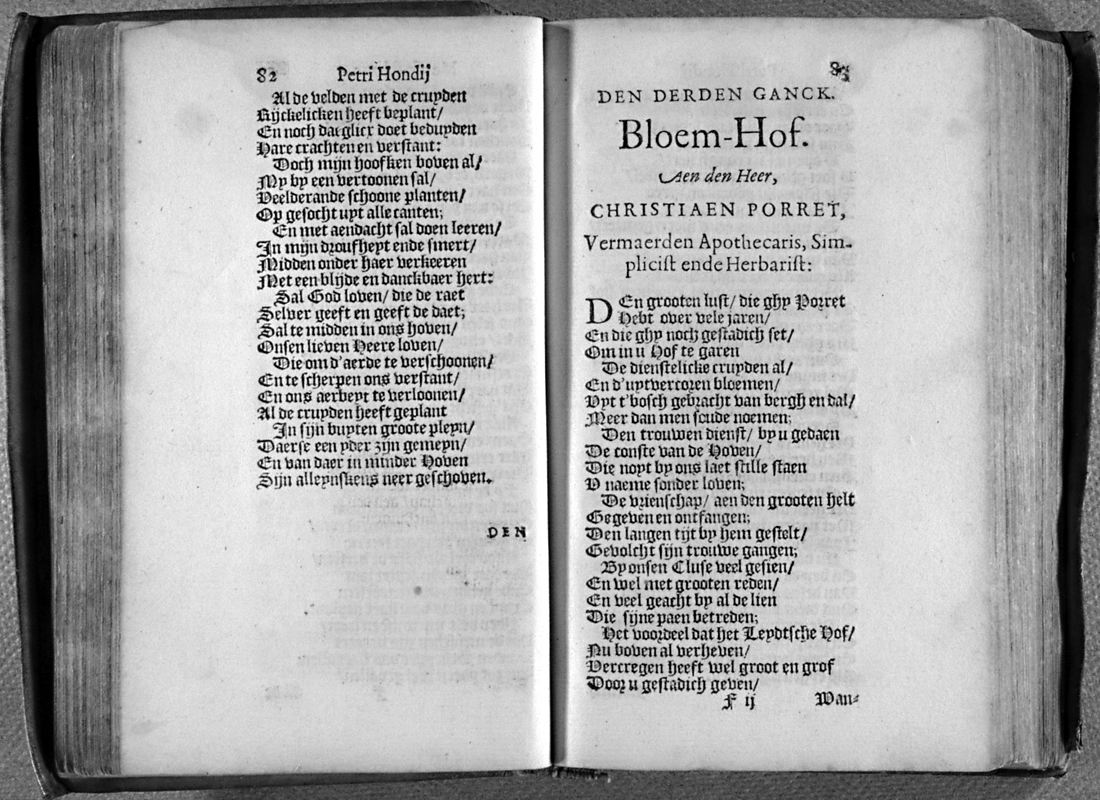 82 Petri Hondij
Al de velden met de cruyden
Rijckelicken heeft beplant/
En noch daeglicx doet beduyden
Hare crachten en verstant:
Doch mijn hoofken boven al/
My by een vertoonen sal/
Veelderande schoone planten/
Op gesocht uyt alle canten;
En met aendacht sal doen leeren/
In mijn droufheyt ende smert/
Midden onder haer verkeeren
Met een blijde en danckbaer hert:
Sal God loven/ die de raet
Selver geeft en geeft de daet;
Sal te midden in ons hoven/
Onsen lieven Heere loven/
Die om d'aerde te verschoonen/
En te scherpen ons verstant/
En ons aerbeyt te verloonen/
Al de cruyden heeft geplant
In sijn buyten groote pleyn/
Daerse een yder zijn gemeyn/
En van daer in minder Hoven
Sijn alleynskens neer geschoven.
DEN
83
DEN DERDEN GANCK.
Bloem-Hof.
Aen den Heer,
CHRISTIAEN PORRET,
Vermaerden Apothecaris, Sim-
plicist ende Herbarist:
DEn grooten lust/ die ghy Porret
Hebt over vele jaren/
En die ghy noch gestadich set/
Om in u Hof te garen
De dienstelicke cruyden al/
En d'uytvercoren bloemen/
Uyt t'bosch gebracht van bergh en dal/
Meer dan men soude noemen;
Den trouwen dienst/ by u gedaen
De conste van de Hoven/
Die noyt by ons laet stille staen
U naeme sonder loven;
De vrienschap/ aen den grooten helt
Gegeven en ontfangen;
Den langen tijt by hem gestelt/
Gevolcht sijn trouwe gangen;
By onsen Cluse veel gesien/
En wel met grooten reden/
En veel geacht by al de lien
Die sijne paen betreden;
Het voordeel dat het Leydtsche Hof/
Nu boven al verheven/
Vercregen heeft wel groot en grof
Door u gestadich geven/
F ij Wan-